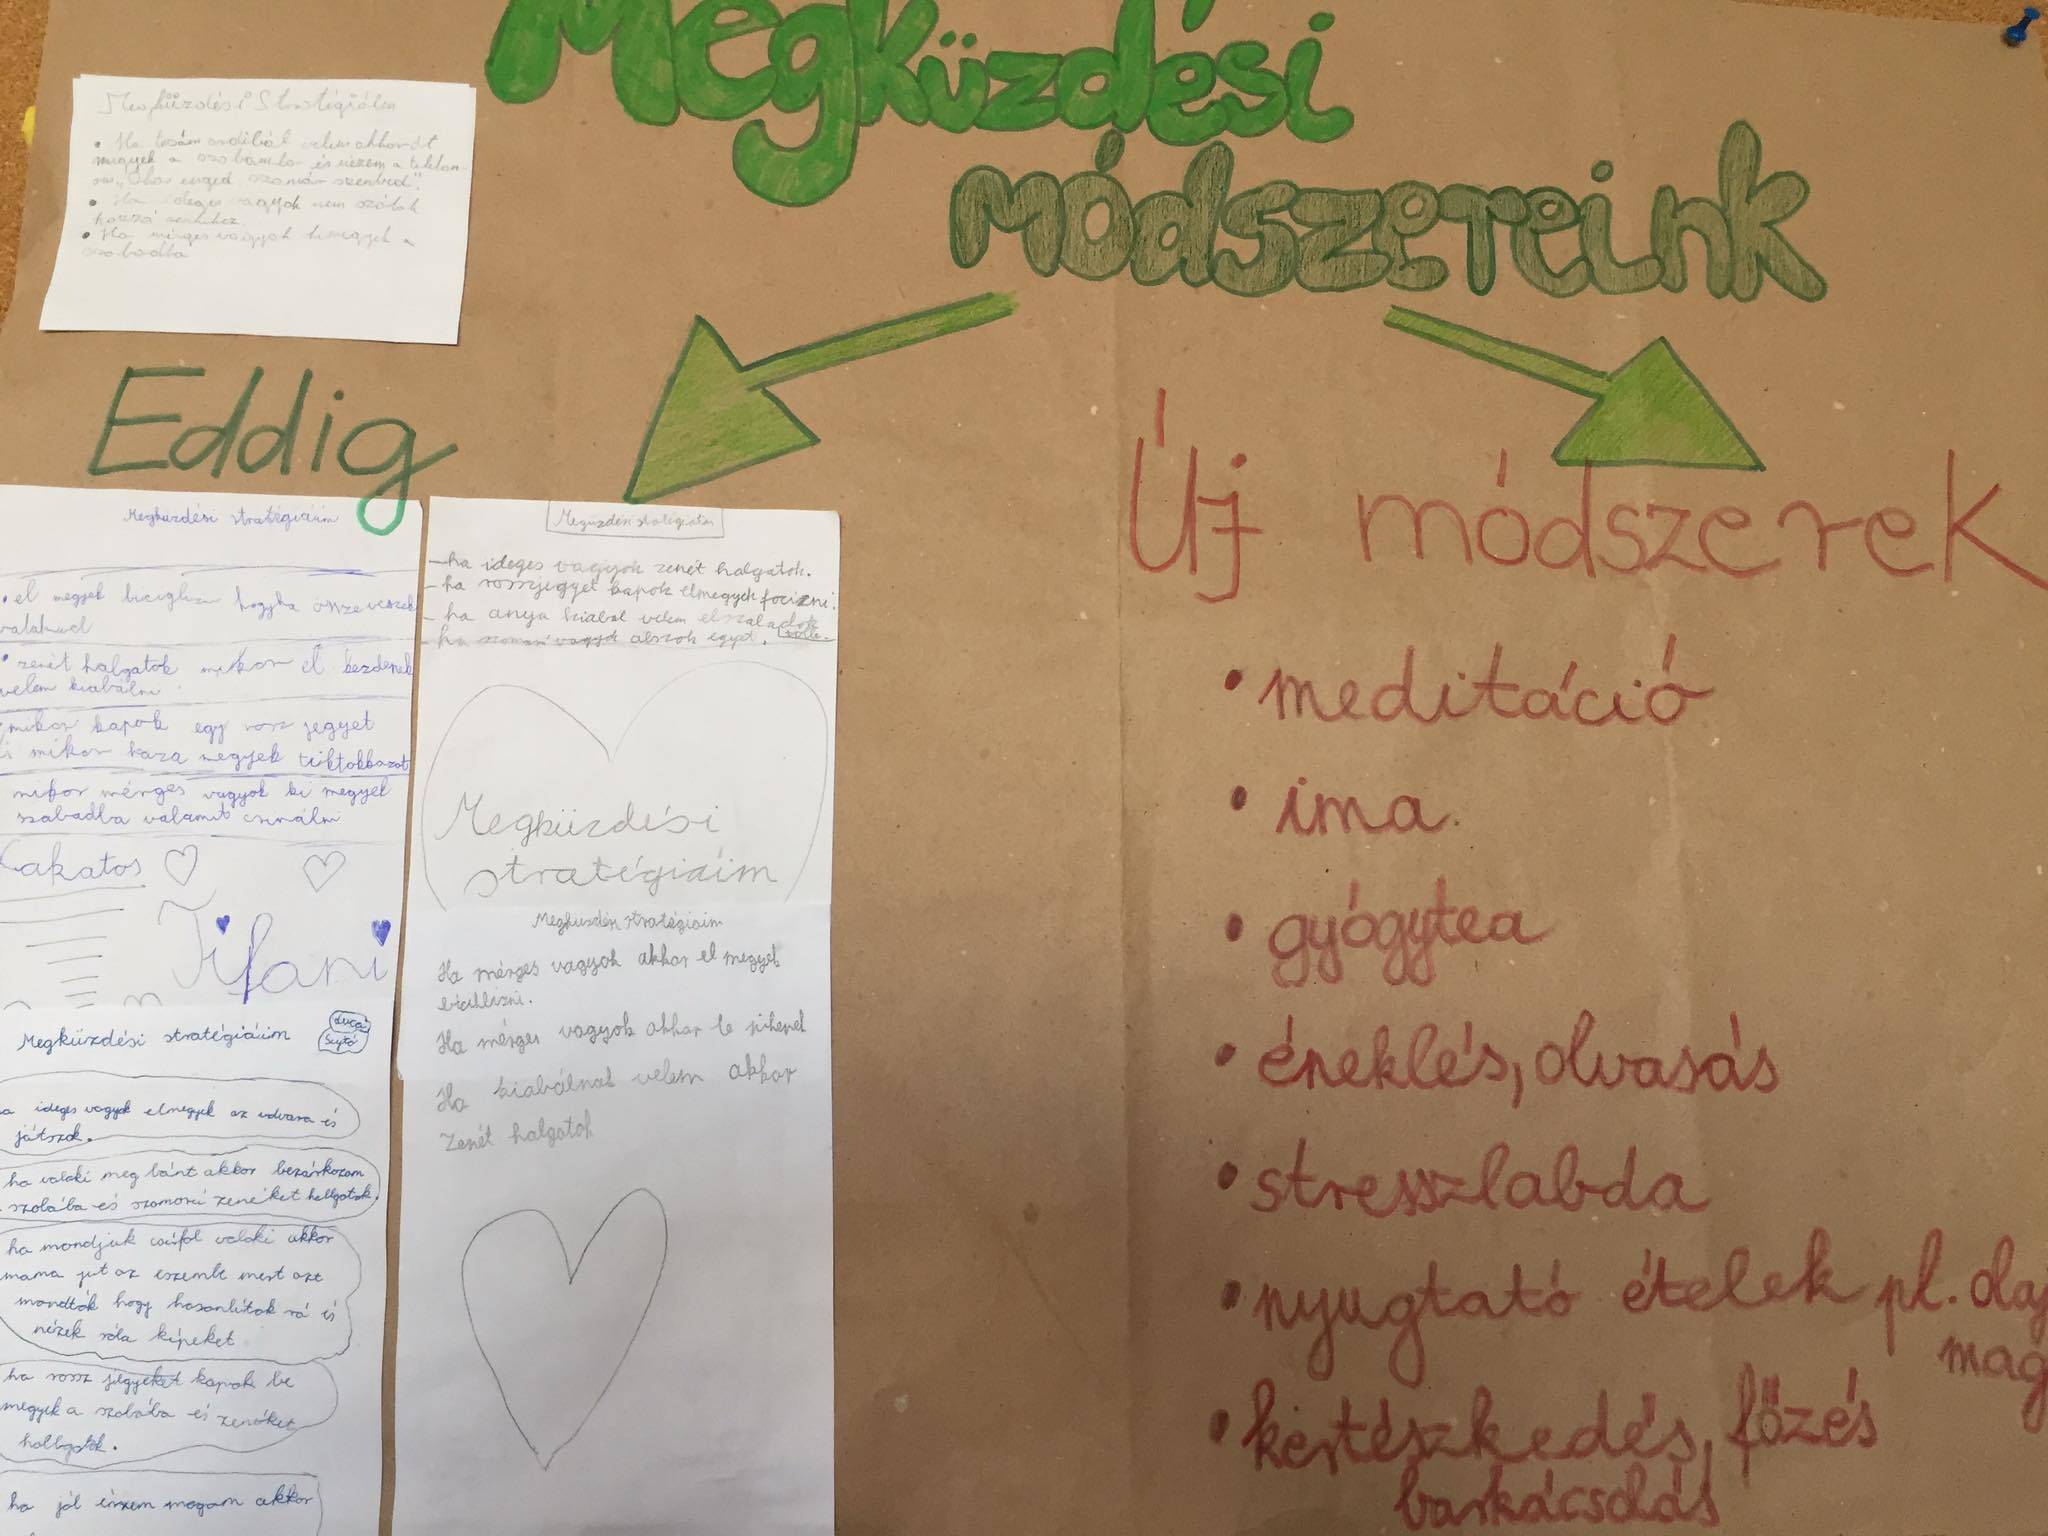 Megküzdési
módszereink
Megküzdési Stratégiáim
• Ha tesám ordibál velem akkor át
megyek a szobámba és nézem a telefon-
• Ha ideges vagyok nem szólok
hozzá senkihez
• Ha mérges vagyok kimegyek a
szabadba
Eddig
Megküzdési stratégiáim
• el megyek biciglizni hogyha össze veszek
valakivel
• zenét halgatok mikor el kezdenek
velem kiabálni.
mikor kapok egy rosz jegyet
és mikor haza megyek tiktokkozok
mikor mérges vagyok ki megyek
szabadba valamit csinálni
Lakatos
Tifani
Megküzdési stratégiáim
Luca
ha ideges vagyok elmegyek az udvara és
játszok.
ha valaki meg bánt akkor bezárkozom
szobába és szomorú zenéket hallgatok.
ha mondjuk csúfol valaki akkor
mama jut az eszembe mert azt
mondták hogy hasonlítok rá és
nézek róla képeket
ha rossz jegyeket kapok be
megyek a szobába és zenéket
hallgatok.
ha jól érzem magam akkor
Megüzdési stratégiáim
- ha ideges vagyok zenét halgatok.
- ha rosszjegyet kapok elmegyek focizni.
- ha anya kiabál velem elszaladok
- ha szomorú vagyok alszok egyet.
Megküzdési
stratégiáim
Megküzdési stratégiáim
Ha mérges vagyok akkor el megyek
biciklizni.
Ha mérges vagyok akkor le pihenek
Ha kiabálnak velem akkor
Zenét halgatok
Új módszerek
• meditáció
• ima
• gyógytea
• éneklés, olvasás
• stresszlabda
• nyugtató ételek pl. olaj
mag
• kertészkedés, főzés
barkácsolás